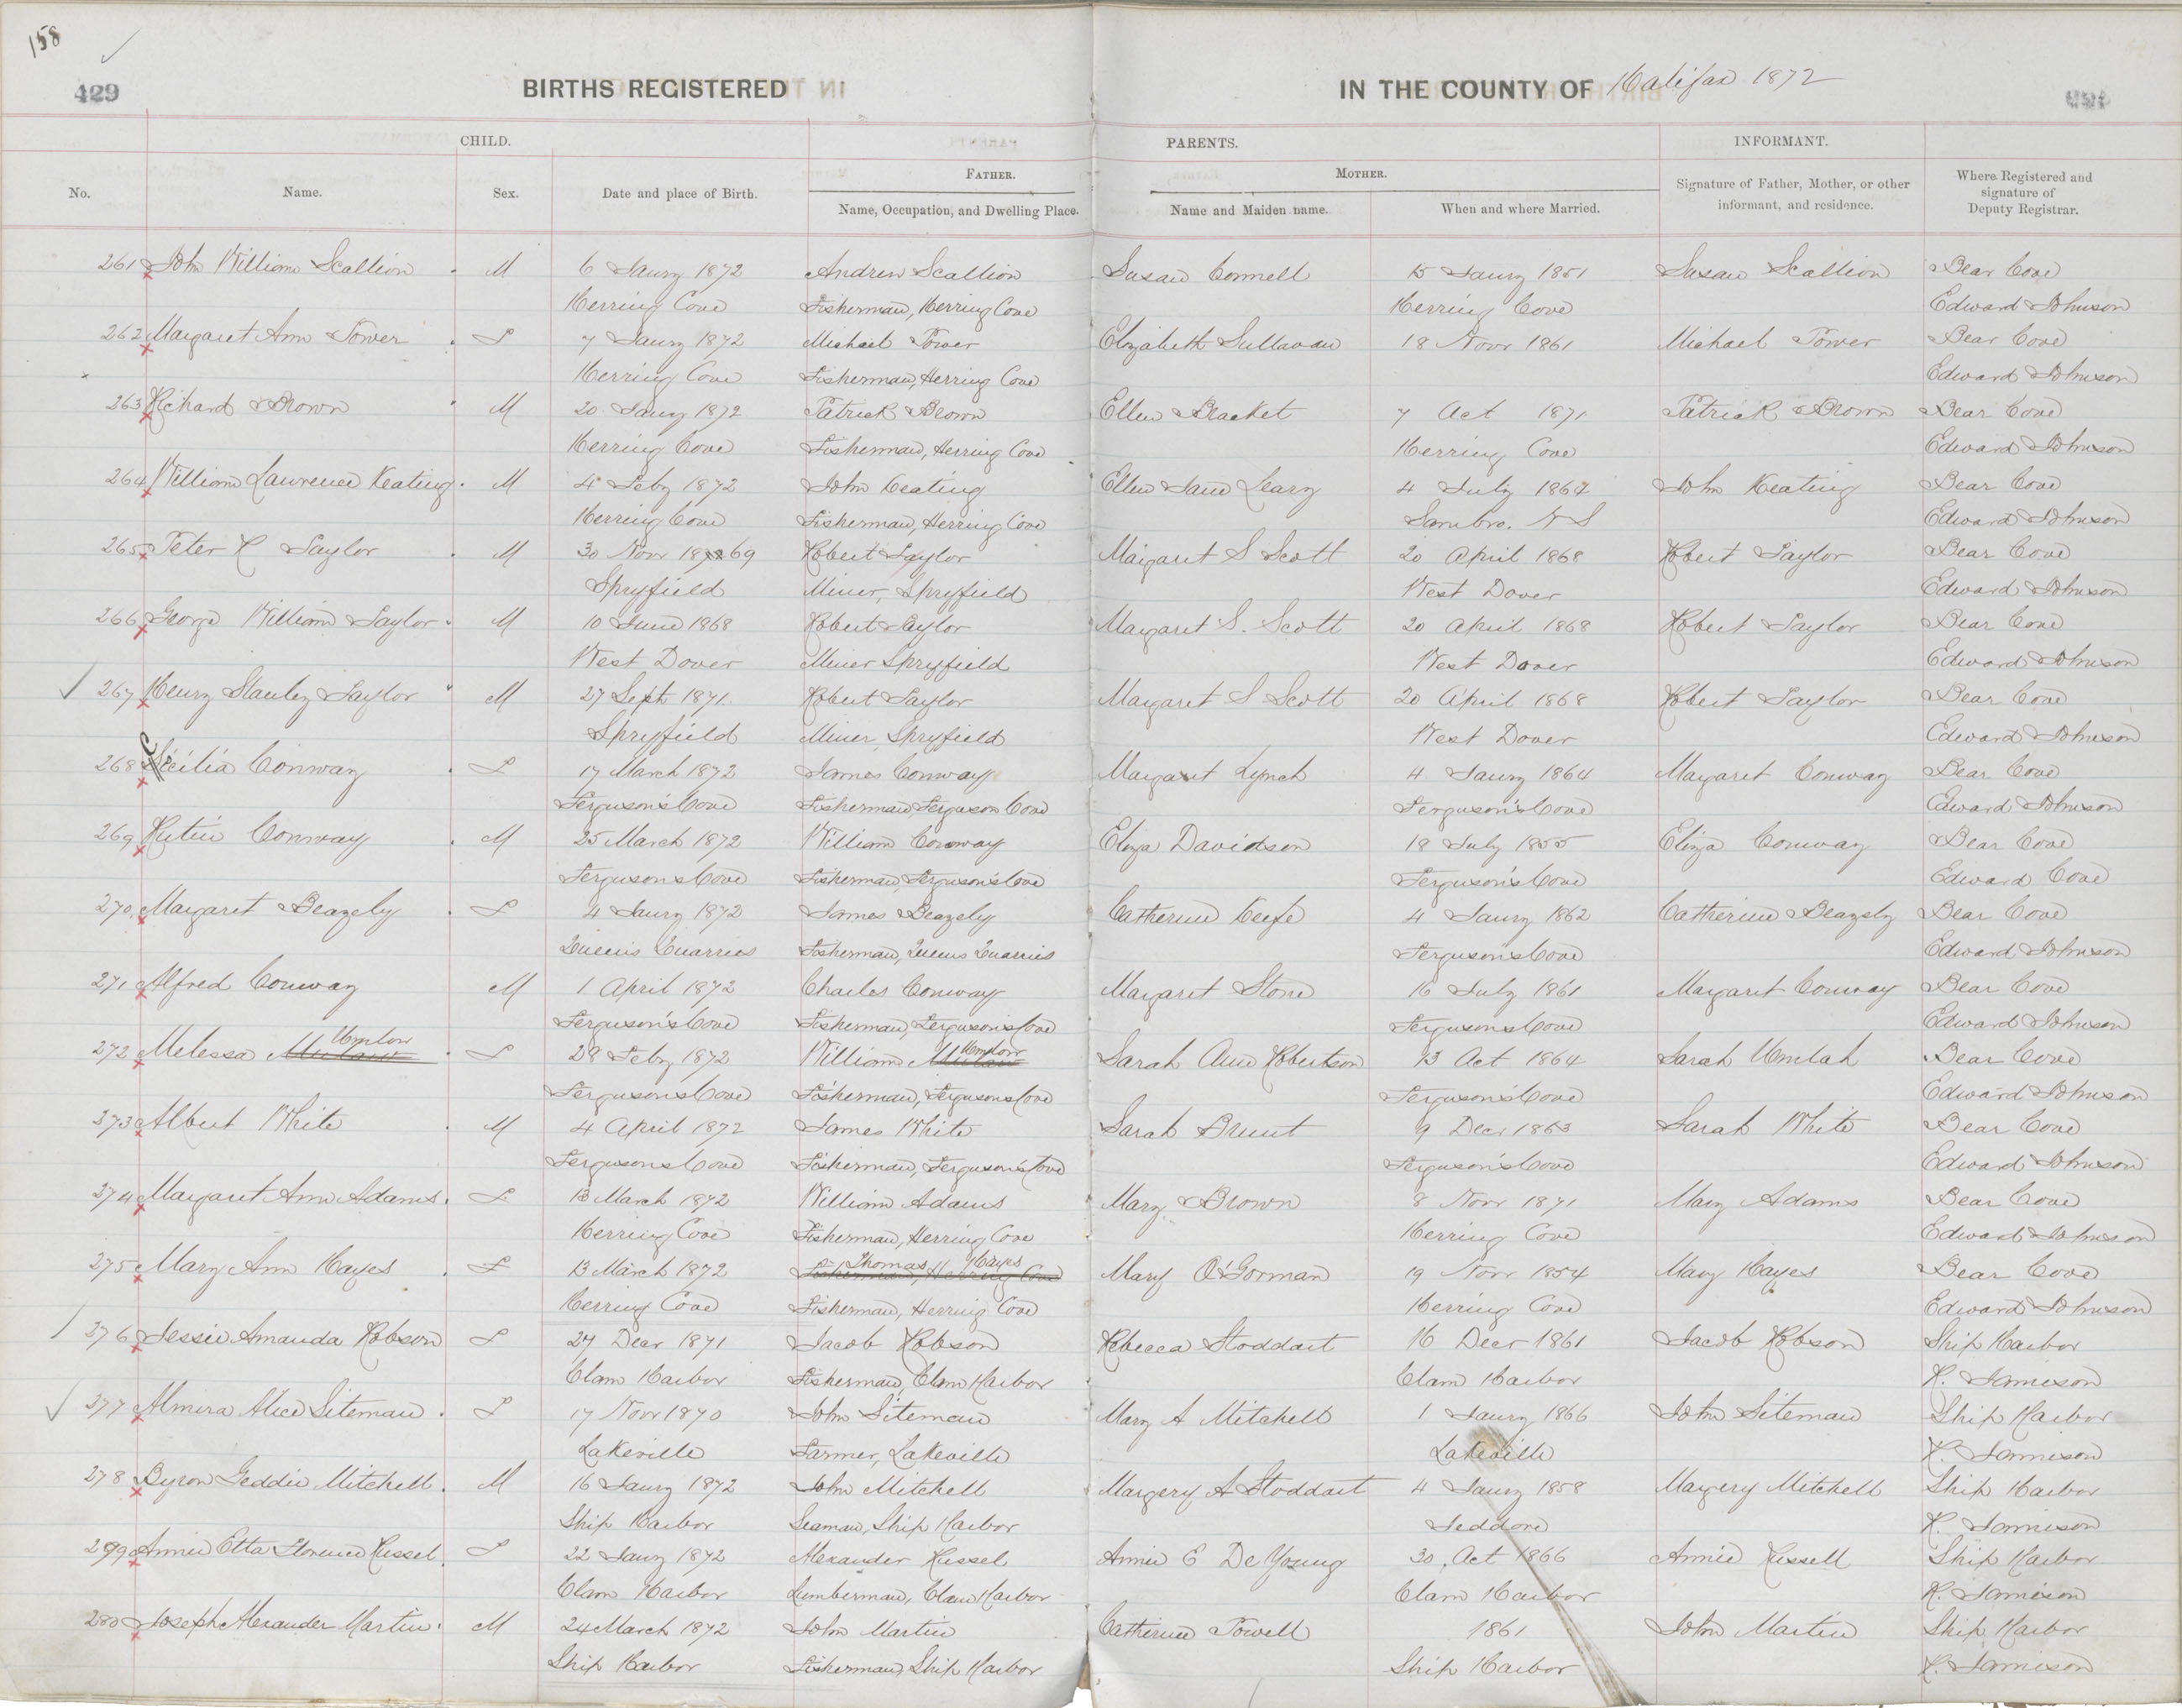 158
429
BIRTHS REGISTERED IN THE COUNTY OF Halifax 1872
CHILD. PARENTS. INFORMANT.
FATHER. MOTHER.
No. Name. Sex. Date and place of Birth. Name, Occupation, and Dwelling Place. Name and Maiden name. When and where Married. Signature of Father, Mother, or other informant, and residence. Where Registered and signature of Deputy Registrar.
261 John William Scallion M 6 Jany 1872 Andrew Scallion Susan Connell 15 Jany 1851 Susan Scallion Bear Cove
Herring Cove Fisherman, Herring Cove Herring Cove Edward Johnson
262 Margaret Ann Power F 7 Jany 1872 Michael Power Elizabeth Sullavan 18 Novr 1861 Michael Power Bear Cove
Herring Cove Fisherman, Herring Cove Edward Johnson
263 Richard Brown M 20 Jany 1872 Patrick Brown Ellen Bracket 7 Oct 1871 Patrick Brown Bear Cove
Herring Cove Fisherman, Herring Cove Herring Cove Edward Johnson
264 William Lawrence Keating M 4 Feby 1872 John Keating Ellen Jane Leary 4 July 1867 John Keating Bear Cove
Herring Cove Fisherman, Herring Cove Sambro. N S Edward Johnson
265 Peter R Taylor M 30 Novr 1869 Robert Taylor Margaret S Scott 20 April 1868 Robert Taylor Bear Cove
Spryfield Miner, Spryfield West Dover Edward Johnson
266 George William Taylor M 10 June 1868 Robert Taylor Margaret S. Scott 20 April 1868 Robert Taylor Bear Cove
West Dover Miner Spryfield West Dover Edward Johnson
267 Henry Stanley Taylor M 27 Sept 1871 Robert Taylor Margaret S Scott 20 April 1868 Robert Taylor Bear Cove
Spryfield Miner, Spryfield West Dover Edward Johnson
268 Cecilia Conway F 17 March 1872 James Conway Margaret Lynch 4 Jany 1864 Margaret Conway Bear Cove
Ferguson's Cove Fisherman Ferguson Cove Ferguson's Cove Edward Johnson
269 Conway M 25 March 1872 William Conway Eliza Davidson 18 July 1855 Eliza Conway Bear Cove
Ferguson's Cove Fisherman, Ferguson's Cove Ferguson's Cove Edward Cove
270 Margaret Beazely F 4 Jany 1872 James Beazely Catherine Keefe 4 Jany 1862 Catherine Beazely Bear Cove
Queens Quarries Fisherman, Queens Quarries Ferguson's Cove Edward Johnson
271 Alfred Conway M 1 April 1872 Charles Conway Margaret Stone 16 July 1861 Margaret Conway Bear Cove
Ferguson's Cove Fisherman, Ferguson's Cove Ferguson's Cove Edward Johnson
272 Melessa Umlow F 28 Feby 1872 William Umlow Sarah Ann Robertson 13 Oct 1864 Sarah Umlah Bear Cove
Ferguson's Cove Fisherman, Ferguson's Cove Ferguson's Cove Edward Johnson
273 Albert White M 4 April 1872 James White Sarah Brunt 9 Decr 1863 Sarah White Bear Cove
Ferguson's Cove Fisherman, Ferguson's Cove Ferguson's Cove Edward Johnson
274 Margaret Ann Adams F 13 March 1872 William Adams Mary Brown 8 Novr 1871 Mary Adams Bear Cove
Herring Cove Fisherman, Herring Cove Herring Cove Edward Johnson
275 Mary Ann Hayes F 13 March 1872 Fisherman, Herring Cove Thomas Hayes Mary O'Gorman 19 Novr 1854 Mary Hayes Bear Cove
Herring Cove Fisherman, Herring Cove Herring Cove Edward Johnson
276 Jessie Amanda Robson F 27 Decr 1871 Jacob Robson Rebecca Stoddart 16 Decr 1861 Jacob Robson Ship Harbor
Clam Harbor Fisherman, Clam Harbor Clam Harbor R. Jamison
277 Almira Alice Siteman F 17 Novr 1870 John Siteman Mary A Mitchell 1 Jany 1866 John Siteman Ship Harbor
Lakeville Farmer, Lakeville Lakeville R. Jamison
278 Byron Geddie Mitchell M 16 Jany 1872 John Mitchell Margery A Stoddart 4 Jany 1858 Margery Mitchell Ship Harbor
Ship Harbor Seaman, Ship Harbor Jeddore R. Jamison
279 Annie Etta Florence Russel F 22 Jany 1872 Alexander Russel Annie E De Young 30 Oct 1866 Annie Russell Ship Harbor
Clam Harbor Lumberman, Clam Harbor Clam Harbor R. Jamison
280 Joseph Alexander Martin M 24 March 1872 John Martin Catherine Powell 1861 John Martin Ship Harbor
Ship Harbor Fisherman, Ship Harbor Ship Harbor R. Jamison